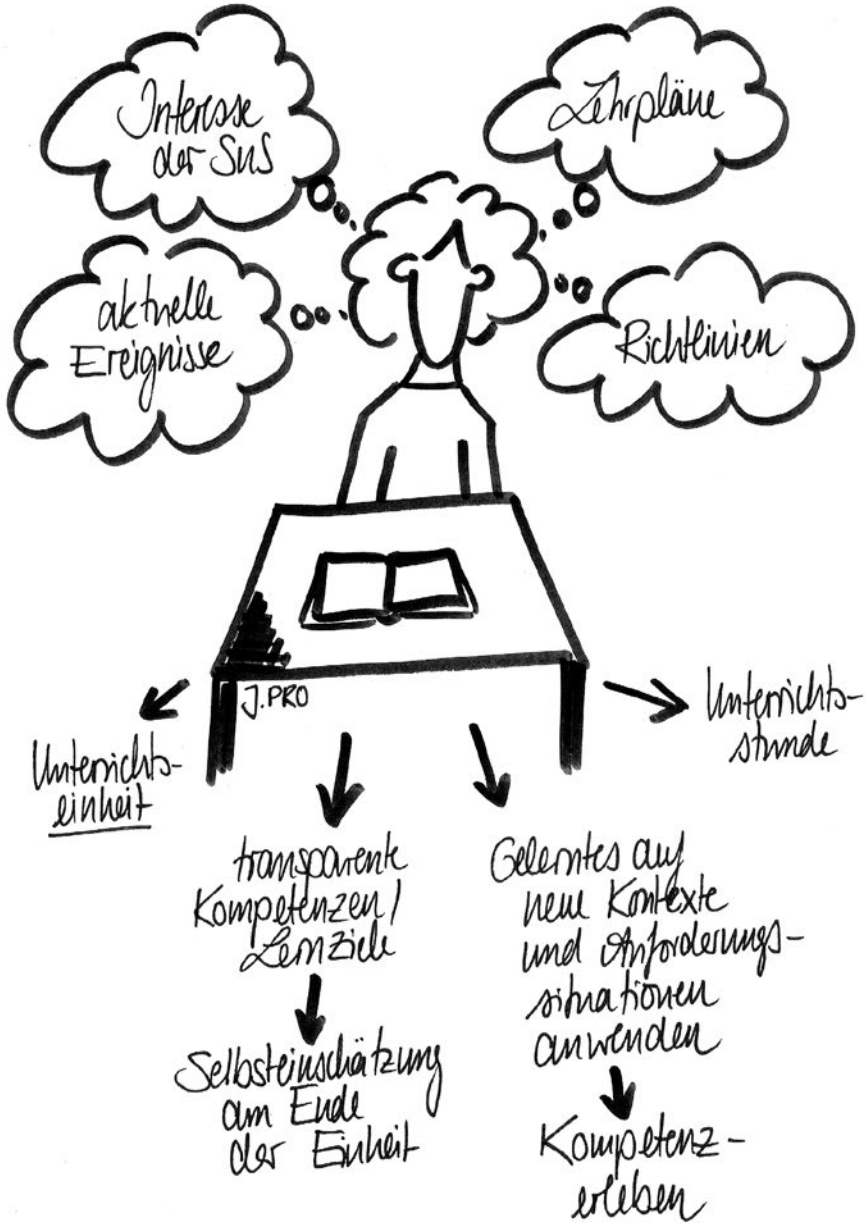 Interesse
der SuS
Lehrpläne
aktuelle
Ereignisse
Richtlinien
J.PRO
Unterrichts-
einheit
Unterrichts-
stunde
transparente
Kompetenzen/
Lernziele
Selbsteinschätzung
am Ende
der Einheit
Gelerntes auf
neue Kontexte
und Anforderungs-
situationen
anwenden
Kompetenz-
erleben